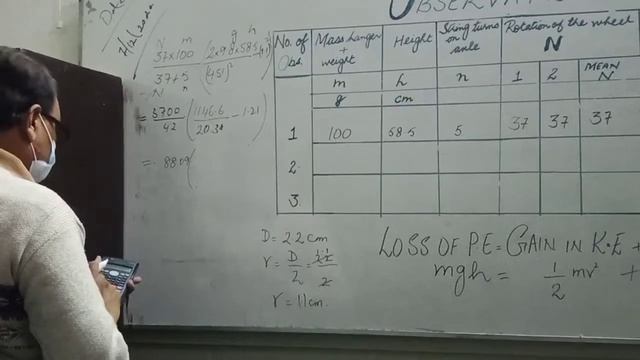 OBSERVAT
N m g h
37x100 (2x9.8x58.5
37+5 (4.51)²
N n
= 5700 (1146.6 - 1.21)
42 20.34
= 88.09(
No. of Obs. Mass hanger + weight Height String turns on axle Rotation of the wheel N
m h n 1 2 MEAN N
g cm
1 100 58.5 5 37 37 37
2.
3.
D = 22 cm
r = D/2 = 22/2
r = 11 cm.
LOSS OF PE = GAIN IN K.E +
mgh = 1/2 mv² +